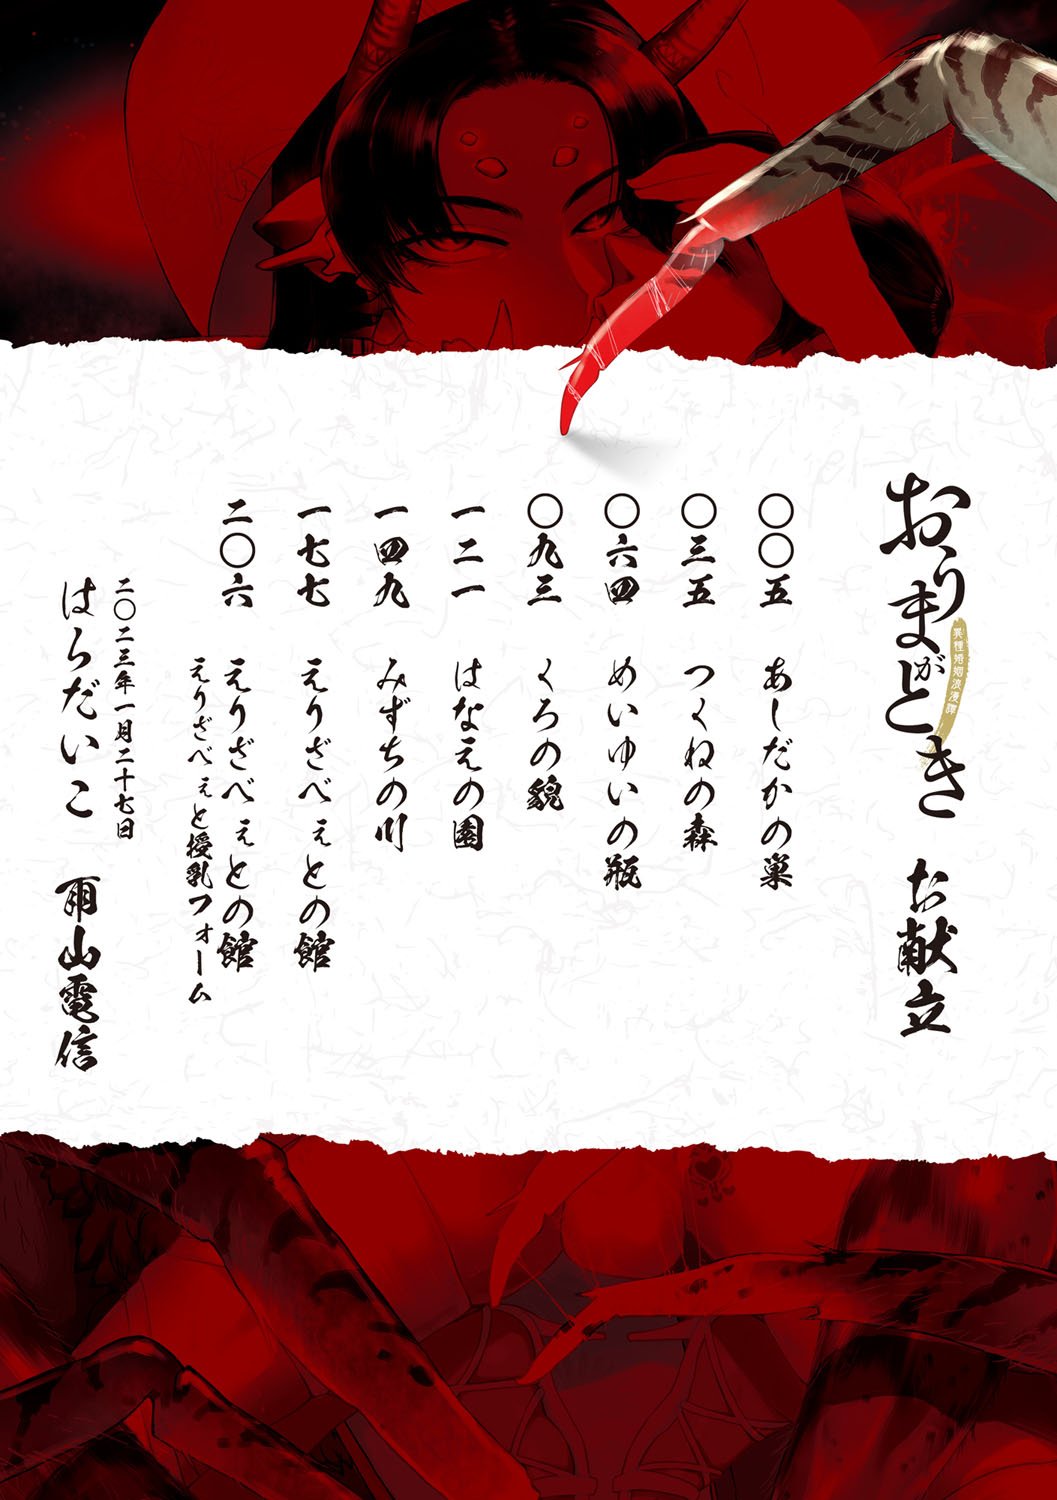 おうまがとき
異種婚姻浪漫譚
お献立
〇〇五 あしだかの巣
〇三五 つくねの森
〇六四 めいゆいの瓶
〇九三 くろの貌
一二一 はなえの園
一四九 みずちの川
一七七 えりざべぇとの館
二〇六 えりざべぇとの館
えりざべぇと授乳フォーム
二〇二三年一月二十七日
はらだいこ 雨山電信